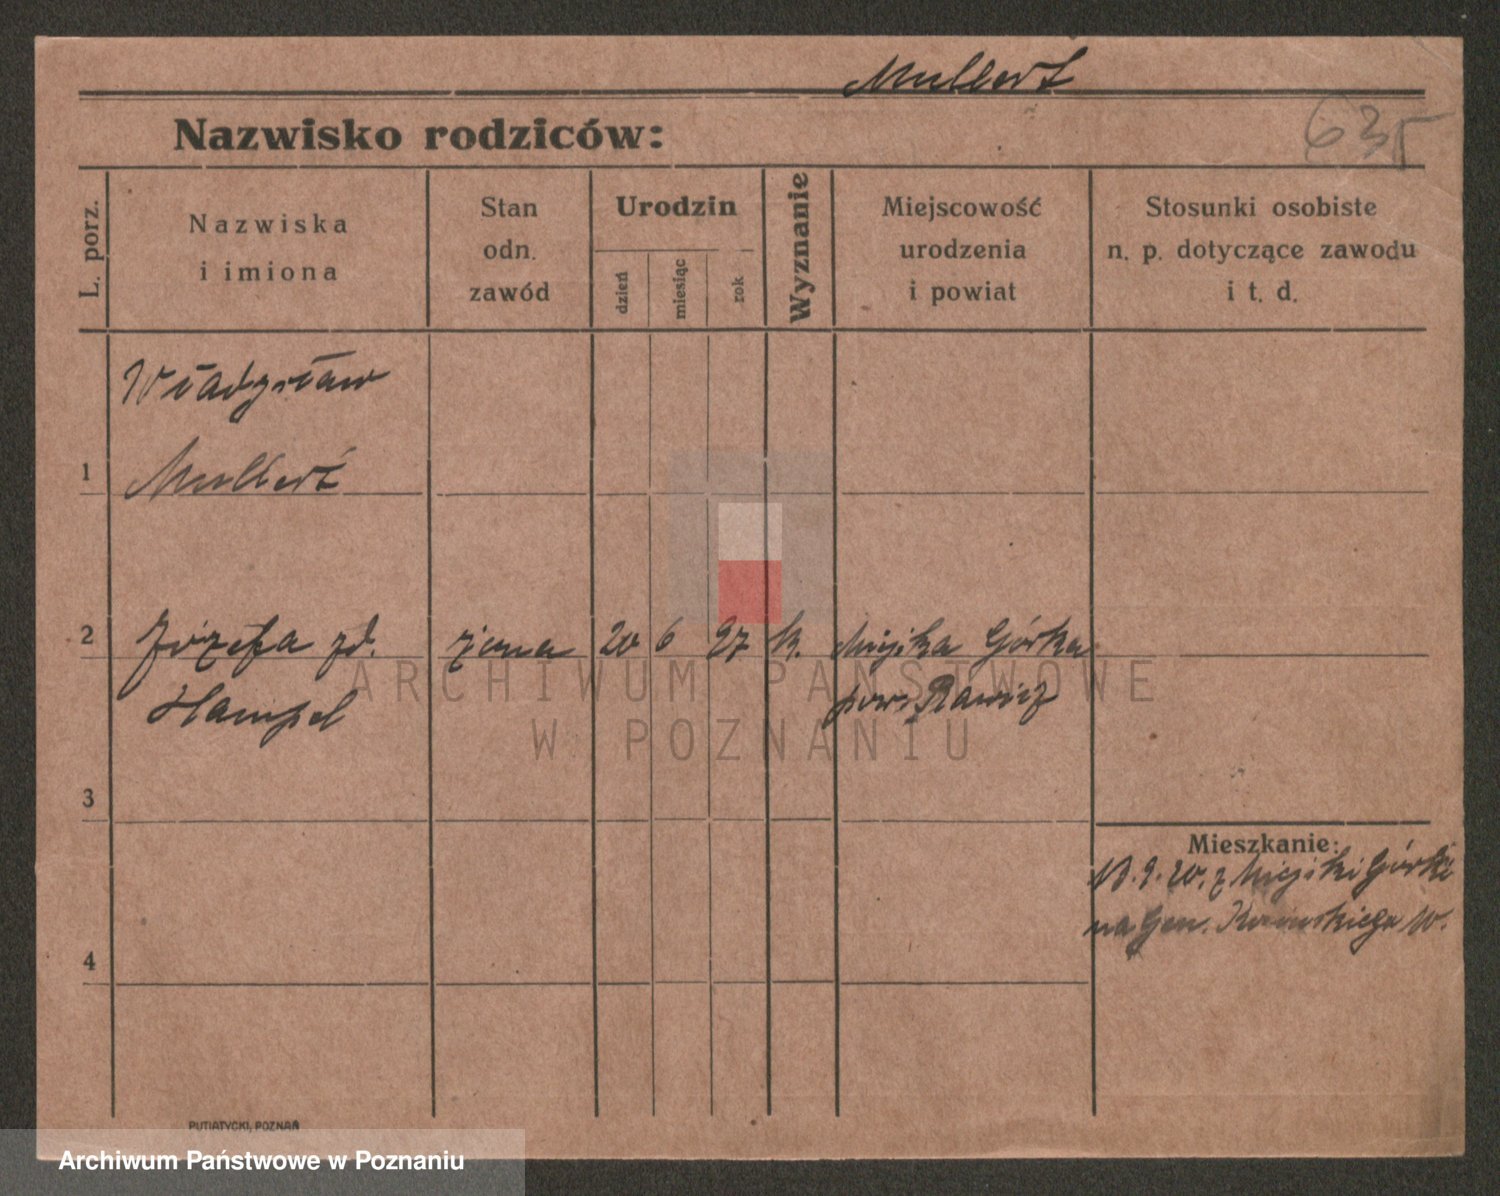 Mullert
635
Nazwisko rodziców:
L. porz.
Nazwiska
i imiona
Stan
odn.
zawód
Urodzin
dzień
miesiąc
rok
Wyznanie
Miejscowość
urodzenia
i powiat
Stosunki osobiste
n. p. dotyczące zawodu
i t. d.
Władysław
1 Mullert
2 Józefa zd. żona 20 6 97 k. Miejska Górka
Hampel pow. Rawicz
3
Mieszkanie:
z Miejski Górki
na Gen.
4
PUTIATYCKI, POZNAŃ
ARCHIWUM PAŃSTWOWE
W POZNANIU
Archiwum Państwowe w Poznaniu